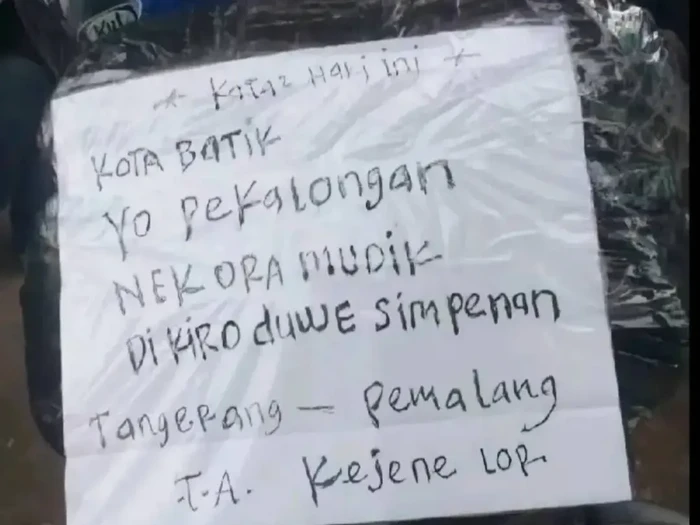 * Kata² Hari ini *
KOTA BATIK
Yo PeKalongan
NEK ORA MUDIK
Di KiRO duWE Simpenan
Tangerang — Pemalang
T.A. Kejene LOR